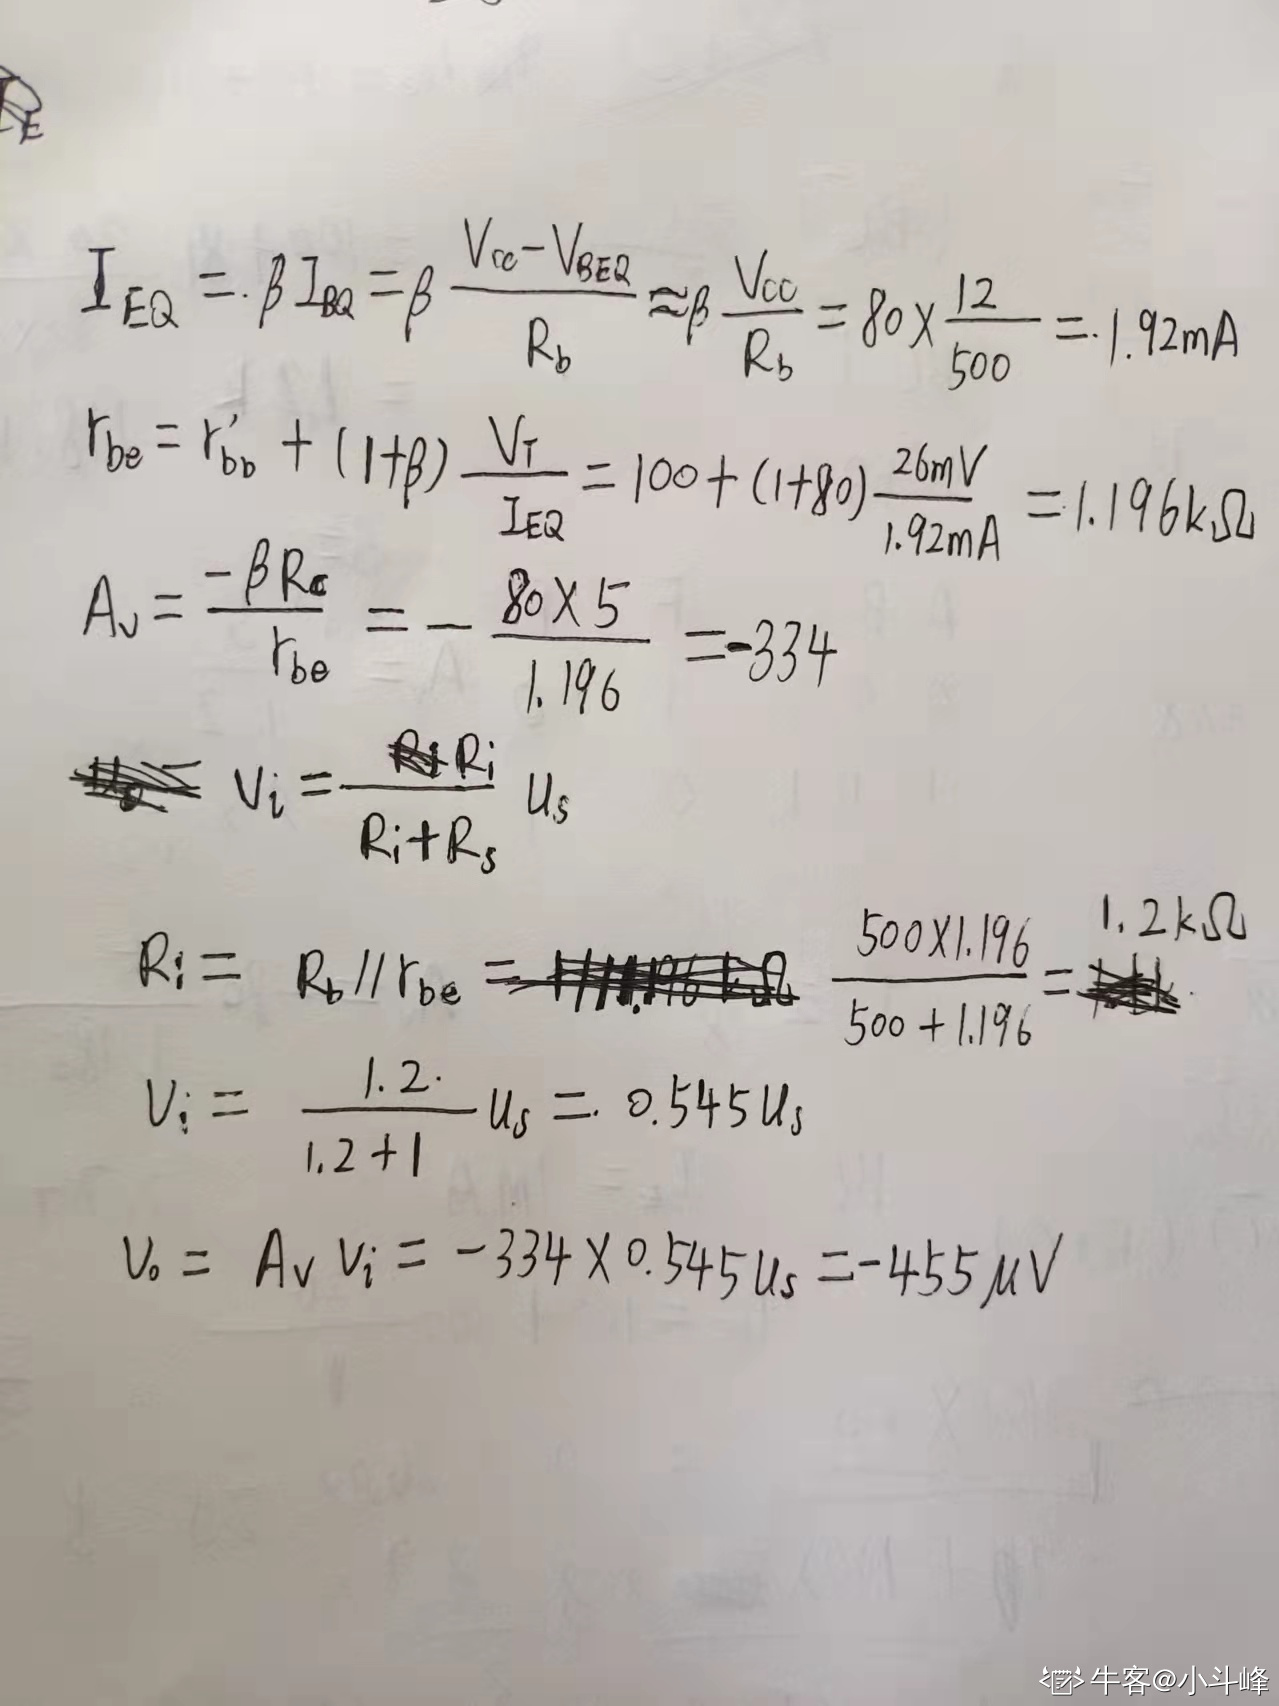 R_E
I_EQ = βI_BQ = β (V_CC - V_BEQ)/R_b ≈ β V_CC/R_b = 80 × 12/500 = 1.92mA
r_be = r'_bb + (1+β) V_T/I_EQ = 100 + (1+80) 26mV/1.92mA = 1.196kΩ
A_v = -βR_c/r_be = - 80×5/1.196 = -334
V_i = R_i/(R_i+R_s) u_s
R_i = R_b // r_be = 500×1.196/(500+1.196) = 1.2kΩ
V_i = 1.2/(1.2+1) u_s = 0.545u_s
V_o = A_v V_i = -334 × 0.545u_s = -455μV
牛客@小斗峰